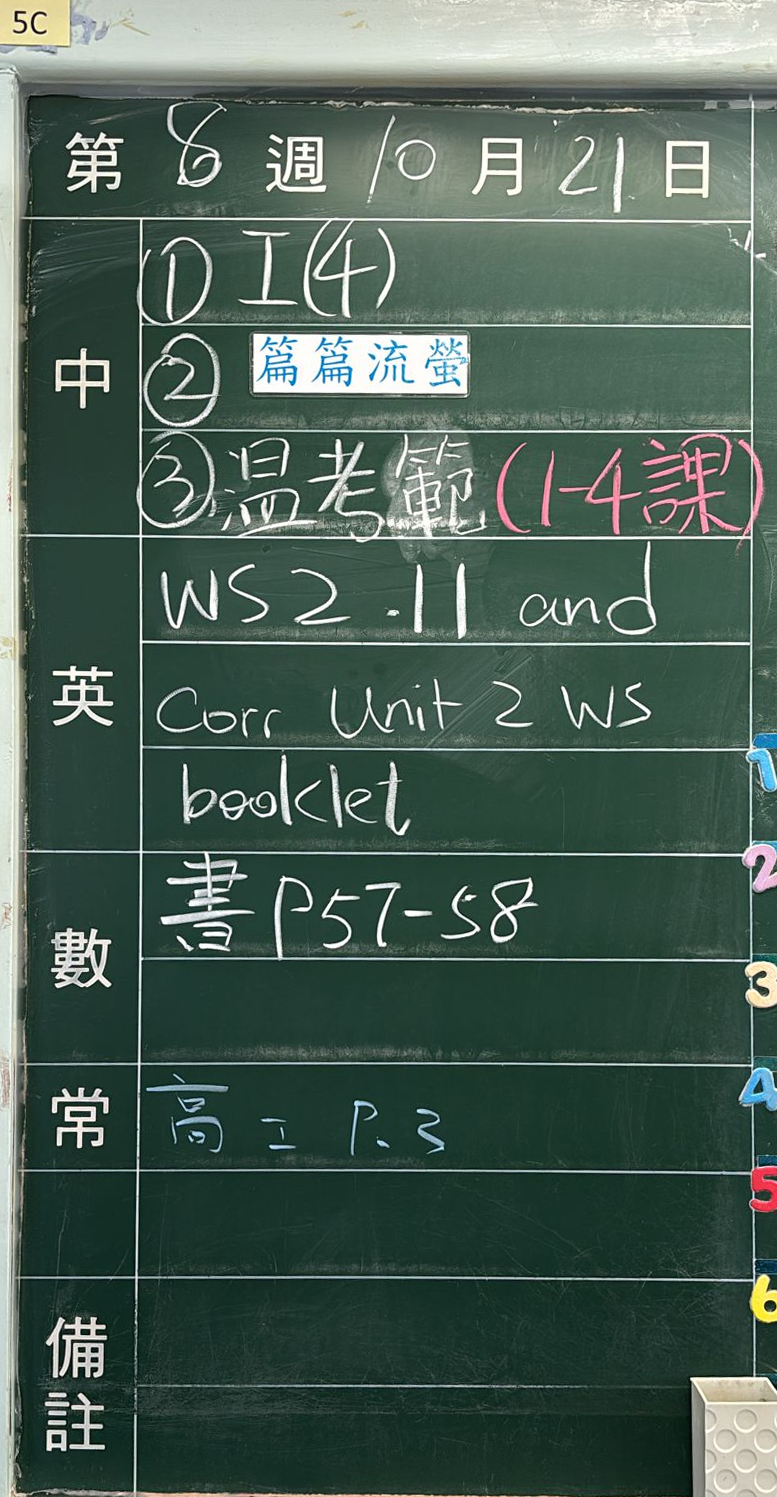 5C
第 8 週 10 月 21 日
中
① 工(4)
② 篇篇流螢
③ 温考範 (1-4課)
英
WS 2.11 and
Corr Unit 2 WS
booklet
數
書 P57-58
常
高工 P.3
備註
1
2
3
4
5
6